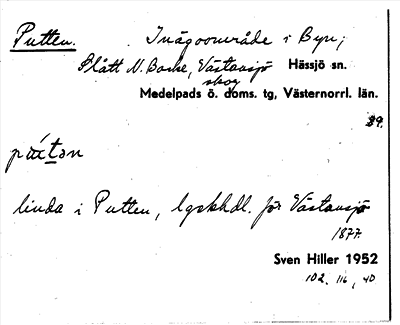 Putten. Inägoområde i Byn;
Slått N. Backe, Västansjö Hässjö sn.
skog
Medelpads ö. doms. tg, Västernorrl. län.
89.
linda i Putten, lgskhdl. för Västansjö
1877.
Sven Hiller 1952
102, 116, 40